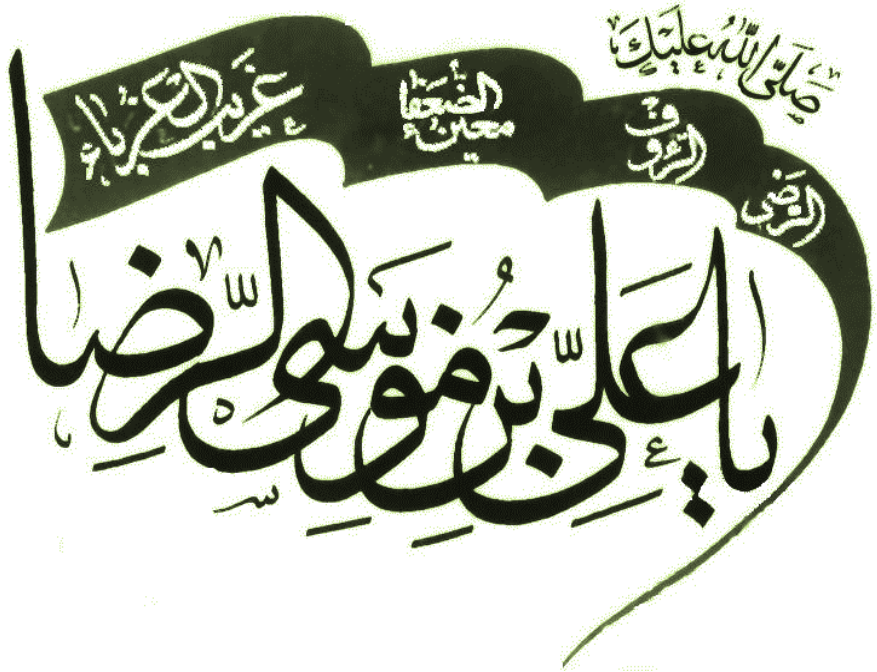 صَلَّی اللهُ عَلَیْكَ
الرَضی
الرؤوف
معین الضعفاء
غریب الغرباء
یا عَلِیِّ بْنِ مُوسَی الرِّضا